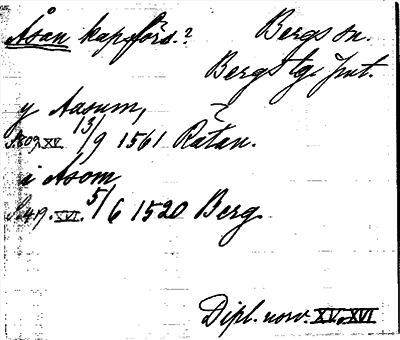 Åsan kapförs.? Bergs sn.
Bergs tg. Jmt.
y Aasum,
S. 809. XV. 13/9 1561 Rätan.
i Åsom
S. 419. XVI. 5/6 1520 Berg.
Dipl. norv. XV. XVI